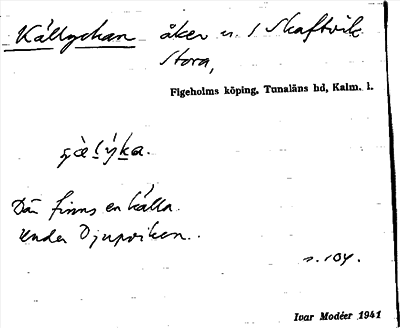 Källyckan åker n. 1 Skaftvik
Stora,
Figeholms köping, Tunaläns hd, Kalm. l.
Där finns en källa
under Djupviken.
s. 104.
Ivar Modéer 1941